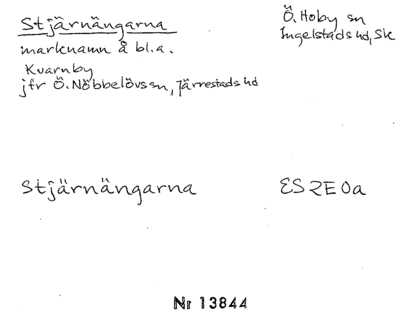 Stjärnängarna
Ö. Hoby sn
Ingelstads hd, Sk
marknamn å bl.a.
Kvarnby
jfr Ö. Nöbbelövs sn, Järrestads hd
Stjärnängarna
ES2E0a
Nr 13844